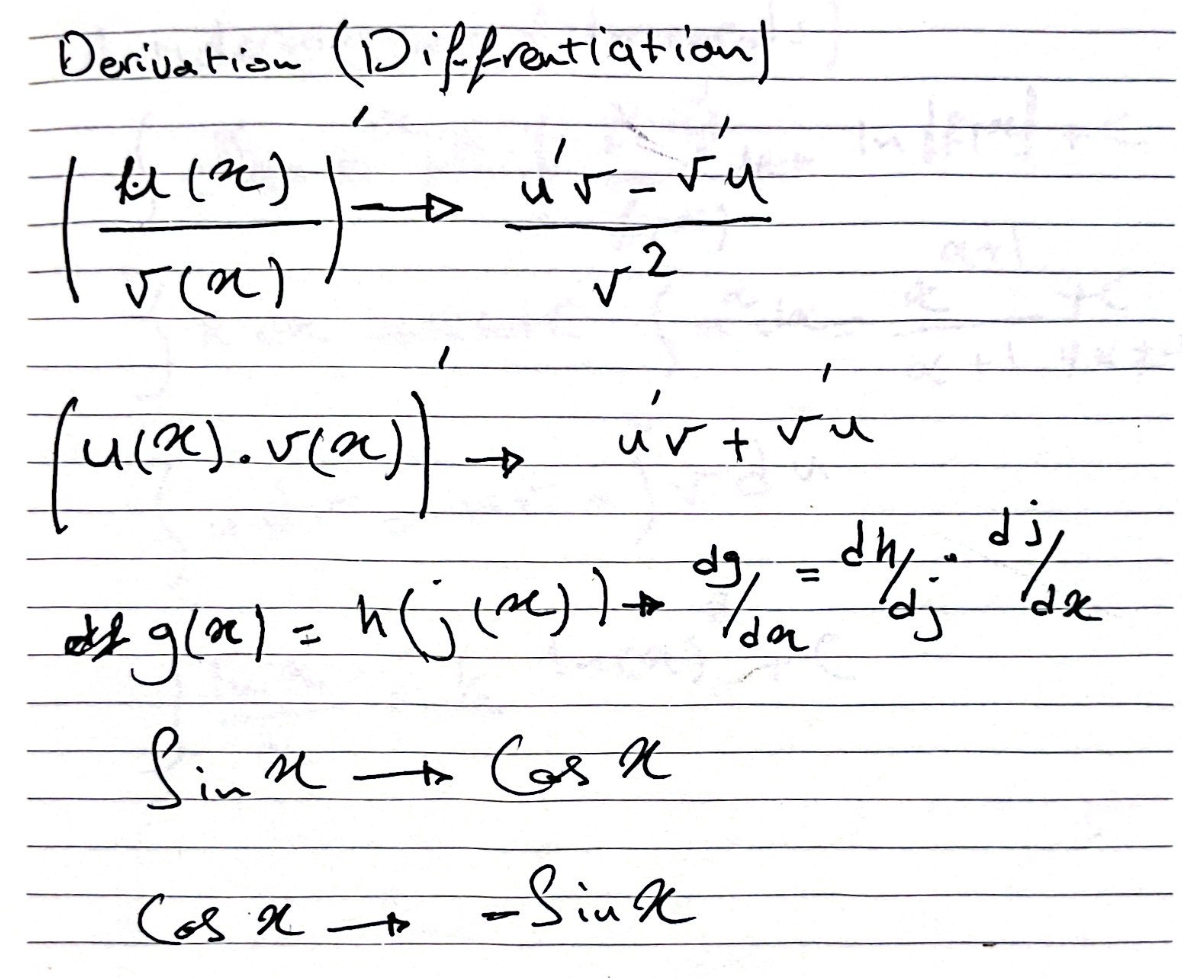 Derivation (Diffrentiation)
(u(x)/v(x))' → (u'v - v'u)/v²
(u(x).v(x))' → u'v + v'u
g(x) = h(j(x)) → dg/dx = dh/dj . dj/dx
Sin x → Cos x
Cos x → -Sin x